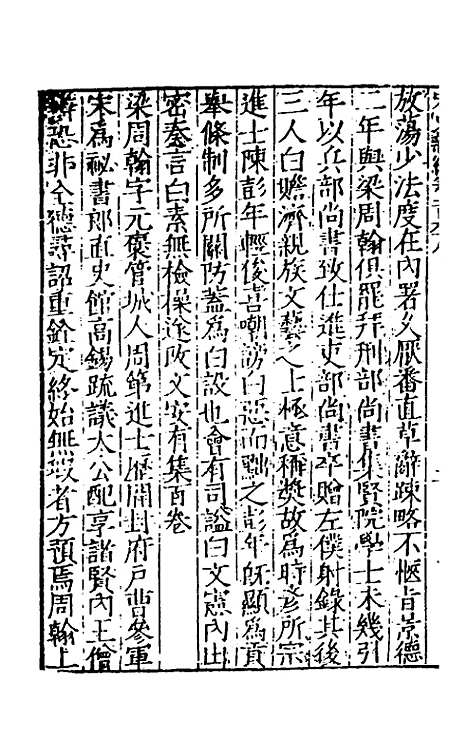 放蕩少法度在內署久厭番直草辭疎略不愜旨景德
二年與梁周翰俱罷拜刑部尚書集賢院學士未幾引
年以兵部尚書致仕進吏部尚書卒贈左僕射錄其後
三人白贍濟親族文藝之士極意稱奬故為時彥所宗
進士陳彭年輕俊喜嘲謗白惡而黜之彭年旣顯為貢
舉條制多所關防蓋為白設也會有司謚白文憲內出
密奏言白素無檢操遂改文安有集百卷
梁周翰字元褒管城人周第進士歷開封府戶曹參軍
宋為祕書郎直史館高錫疏議太公配享諸賢內王僧
辯恐非全德尋詔重銓定終始無瑕者方預焉周翰上